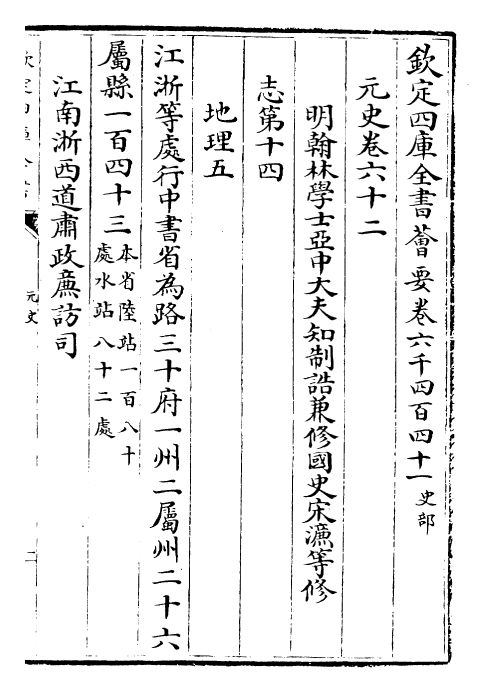 欽定四庫全書薈要卷六千四百四十一史部
元史卷六十二
明翰林學士亞中大夫知制誥兼修國史宋濂等修
志第十四
地理五
江浙等處行中書省為路三十府一州二屬州二十六
屬縣一百四十三本省陸站一百八十
處水站八十二處
江南浙西道肅政廉訪司
元史